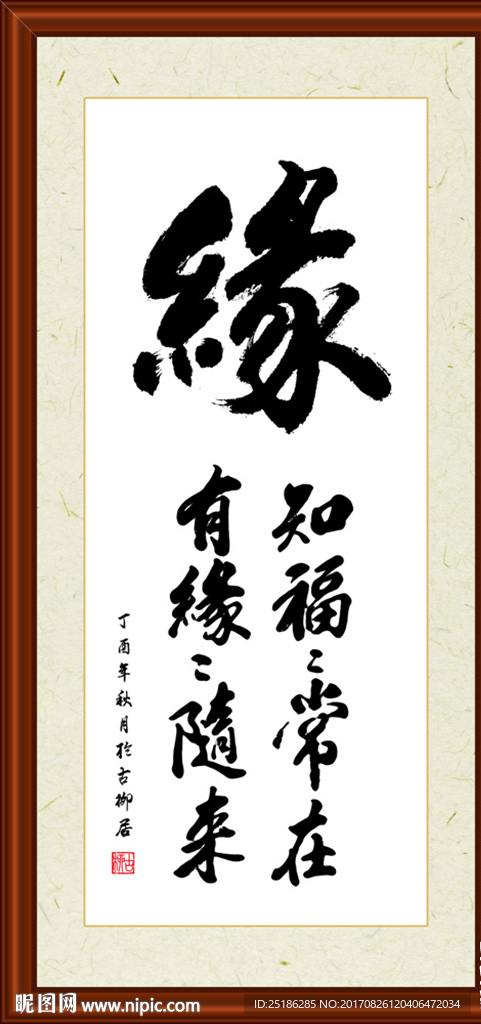 緣
知福〻常在
有緣〻隨来
丁酉年秋月於古柳居
昵图网 www.nipic.com
ID:25186285 NO:20170826120406472034